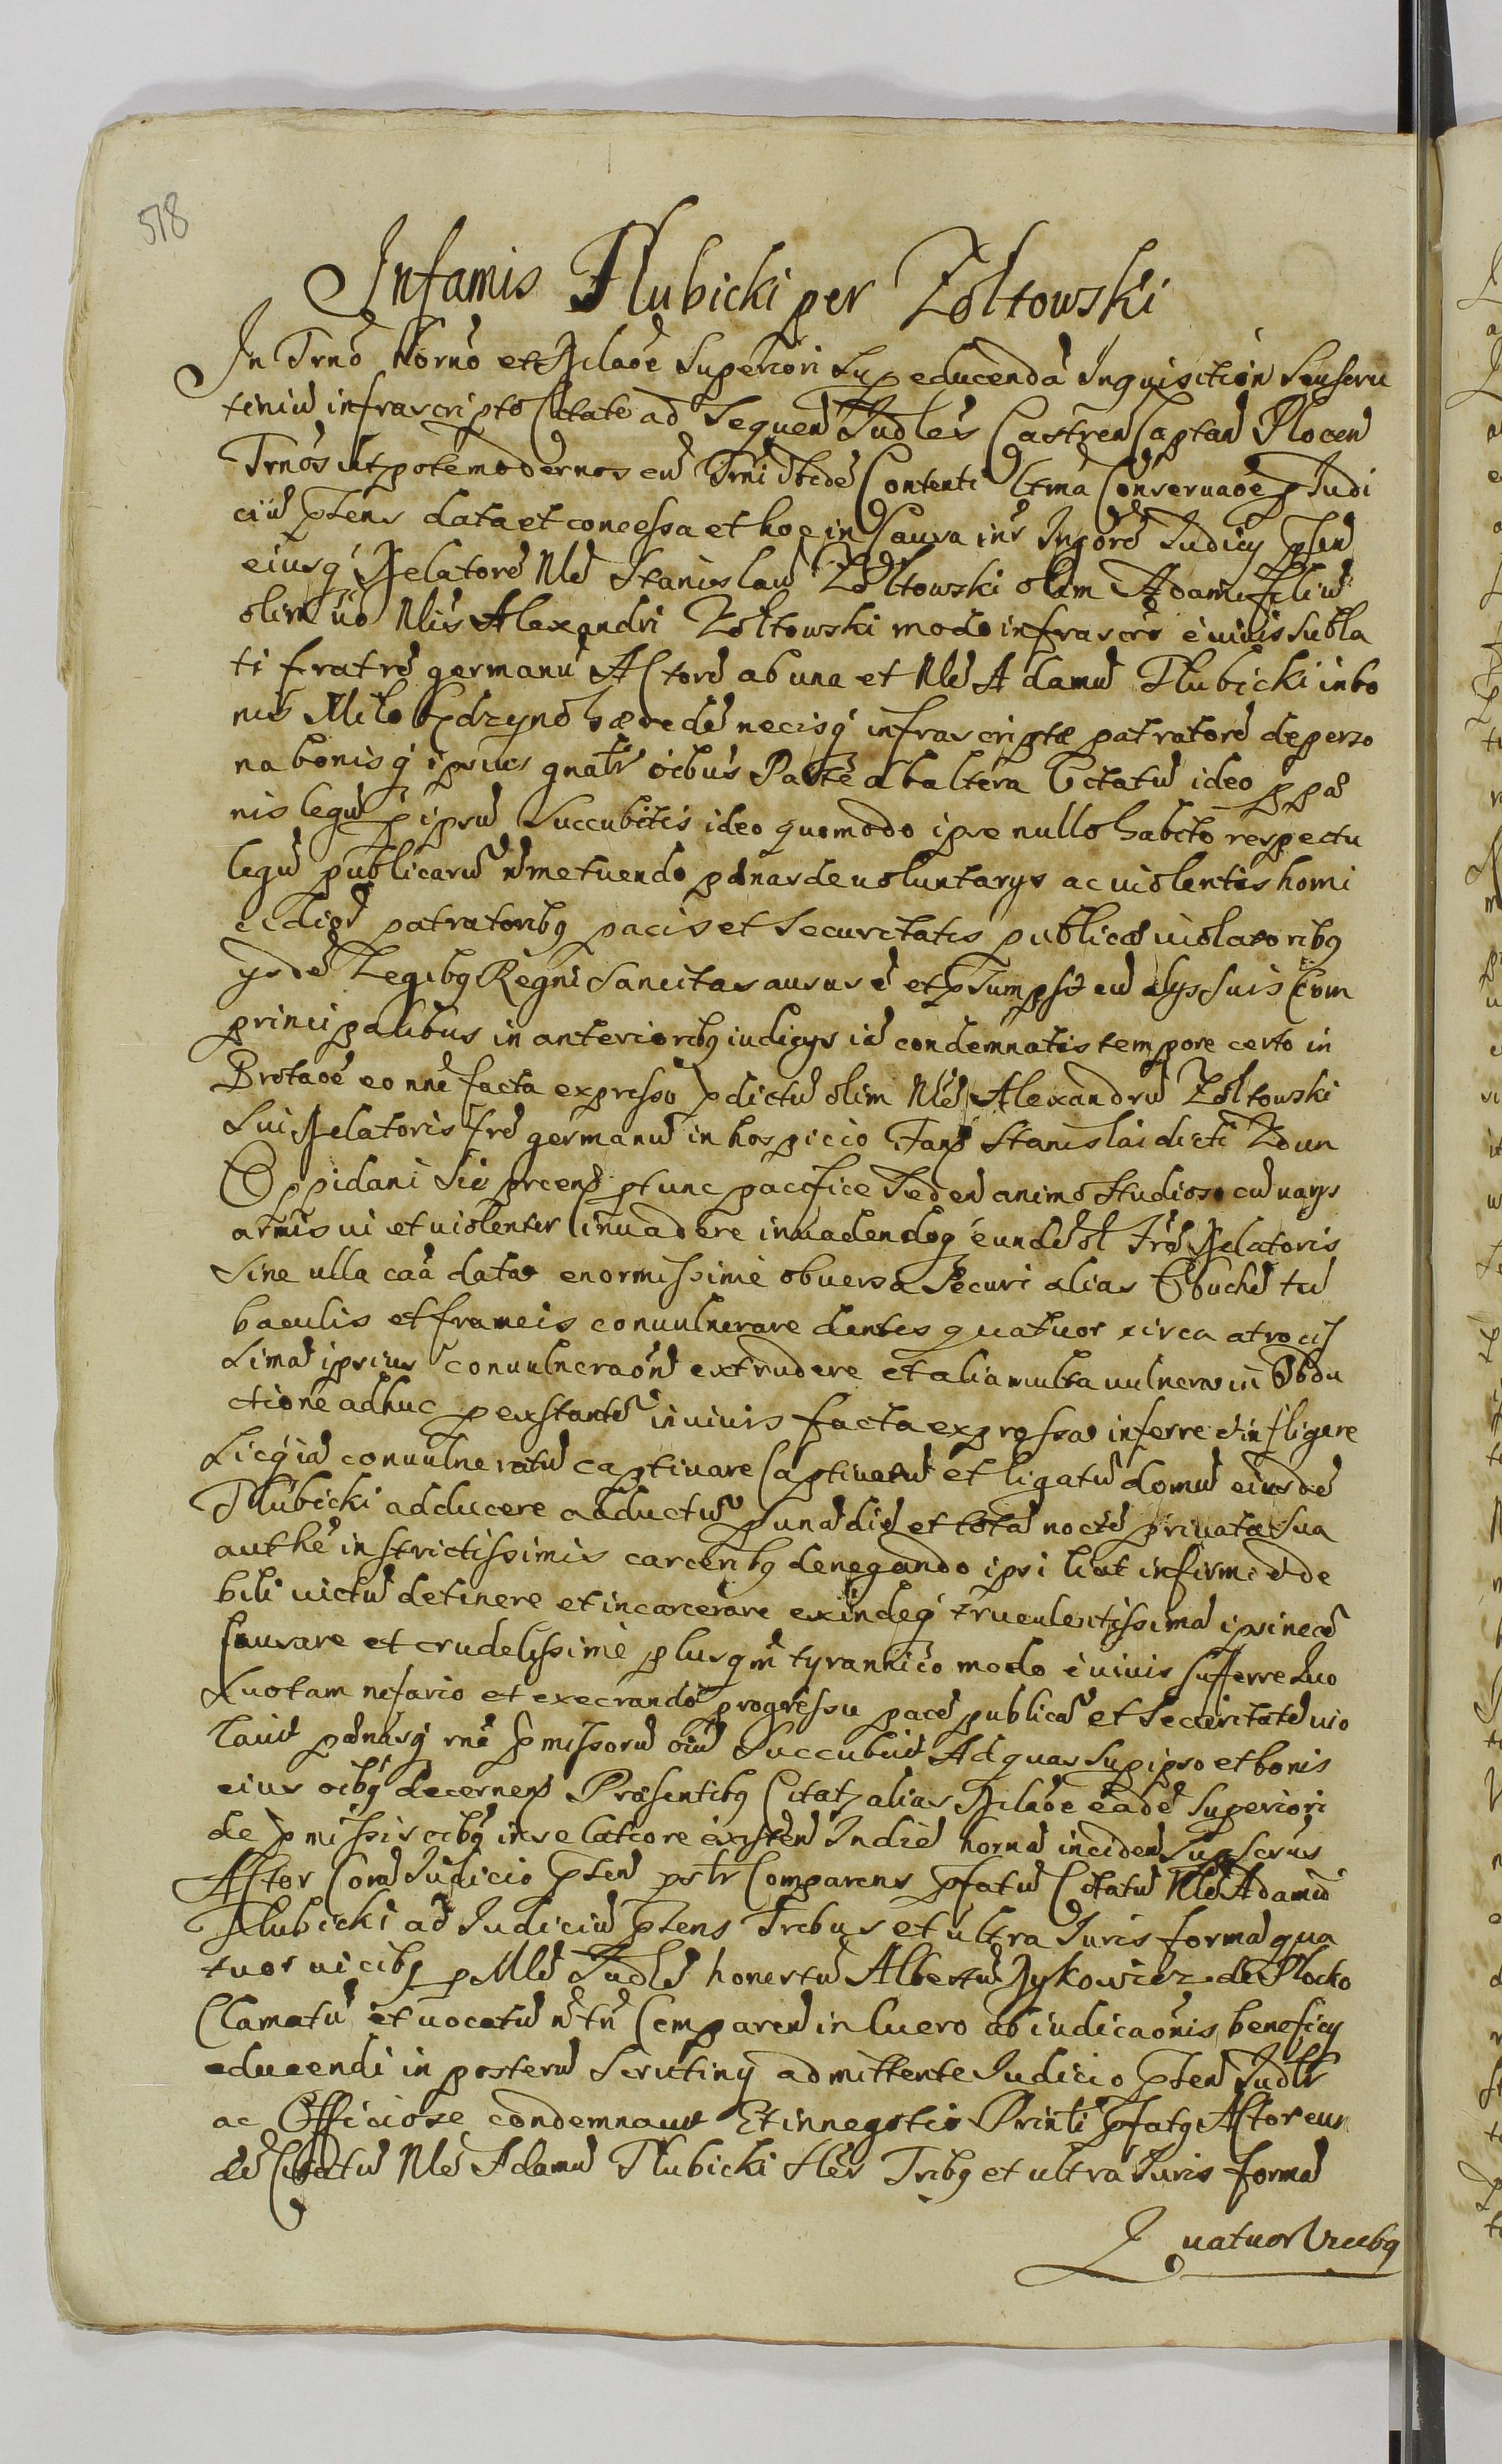 518
Infamis Tlubicki per Zołtowski
In Trnō hornō et Relaōe Superiori Sup educendā Inquisitiōn Seu scru
tiniū infrascripto Citate ad Sequen Iudles Castren Captan Plocen
Trnōs utpote modernos cū Trni ibidē Contenti Conservaōe p Iudi
ciū pñens data et concessa et hoc in Causa intr Insōrē Iudicy pñen
eiusq Relatorē Nlē Stanislaū Zołtowski olim Adami filiū
olim uō Nlis Alexandri Zołtowski modo infrascrō è viuis subla
ti fratrē germanū Actorē ab una et Nlē Adamū Tlubicki in bo
nis Milobędzyno hæredē necisq infrascriptæ patratorē de perso
na bonisq ipsius gnalr oibus Partē ab altera Citatū ideo p pœ
nis legū p ipsū Succubitis ideo quomodo ipse nullo habito respectu
legū publicarū n metuendo pœnas de uoluntarys ac uiolentis homi
cidiorū patratoribq pacis et securitatis publicæ uiolatoribq
ysdē Legibq Regni Sancitas ausus ē et pſumpsit cū alys suis Com
principalibus in anterioribq iudicys iā condemnatis tempore certo in
Protaōe eo nnē facta expresso pdictū olim Nlē Alexandrū Zołtowski
Sui Relatoris frē germanū in hospicio Stanislai dicti Zdun
Oppidani Sie ptunc pacifice Seden animo studioso cū uarys
armis ui et uiolenter inuadere inuadendoq eundē ol frē Relatoris
sine ulla caā data enormissime obuersa Securi alias Obuchē tū
baculis et frameis conuulnerare dentes quatuor circa atrocis
simā ipsius conuulneraōnē extrudere et alia multa uulnera in Obdu
ctione adhuc p exstantē in viuis facta expressa inferre et infligere
Sicq iā conuulneratū captiuare Captiuatū et ligatū domū eiusdē
Tlubicki adducere adductū p unā diē et totā noctē priuata sua
authē in strictissimis carceribq denegando ipsi licet infirmo et de
bili uictū detinere et incarcerare exindeq truculentissimā ipsi necē
causare et crudelissimè plusqm tyrannico modo è viuis sufferre Quo
Suo tam nefario et execrando progressu pacē publicā et Securitatē uio
lauit pœnasq rnē pmissorū oiū Succubuit Ad quas sup ipso et bonis
eius oibq decernen Præsentibq Citat alias Relaōe eādē Superiori
de pmissis oibq in relatiore existen In diē hornā inciden Supscrus
Actor Corā Iudicio pñen pstr Comparens pfatū Citatū Nlē Adamū
Tlubicki ad Iudiciū pñens Tribus et ultra Iuris formā qua
tuor uicibq p Mle Iudlē honestū Albertū Rykowicz de Plocko
Clamatū et uocatū n tn Comparen in lucro abiudicaōnis beneficy
educendi in posterū Scrutiny admittente Iudicio pñen Iudlr
ac Officiose condemnauit Et in negotio Prinli pfatq Actor eun
dē Citatū Nlē Adamū Tlubicki Tribq et ultra Iuris formā
Quatuor Vicibq